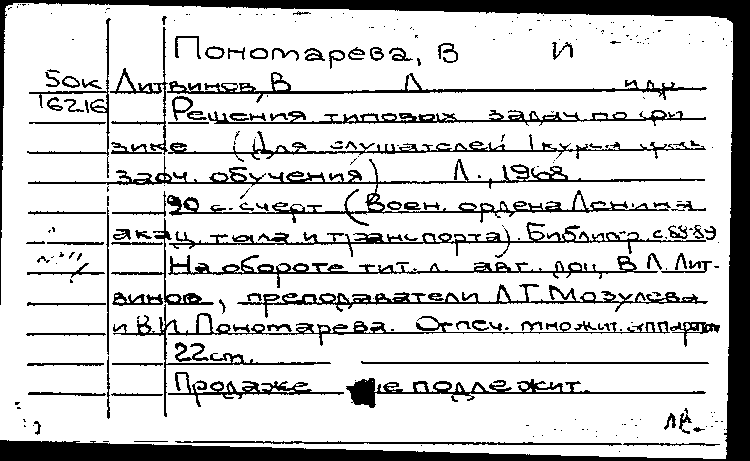 Пономарева, В И
50к Литвинов, В Л и др
16216 Решения типовых задач по фи
зике (Для слушателей I курса фак
заоч. обучения) Л., 1968.
90 с. с черт (Воен. ордена Ленина
акад. тыла и транспорта). Библиогр. с. 88-89
На обороте тит. л. авт. доц. В Л. Лит-
винов, преподаватели Л.Т. Мозулева
и В.И. Пономарева. Отпеч. множит. аппаратом
22 cm.
Продаже не подлежит.